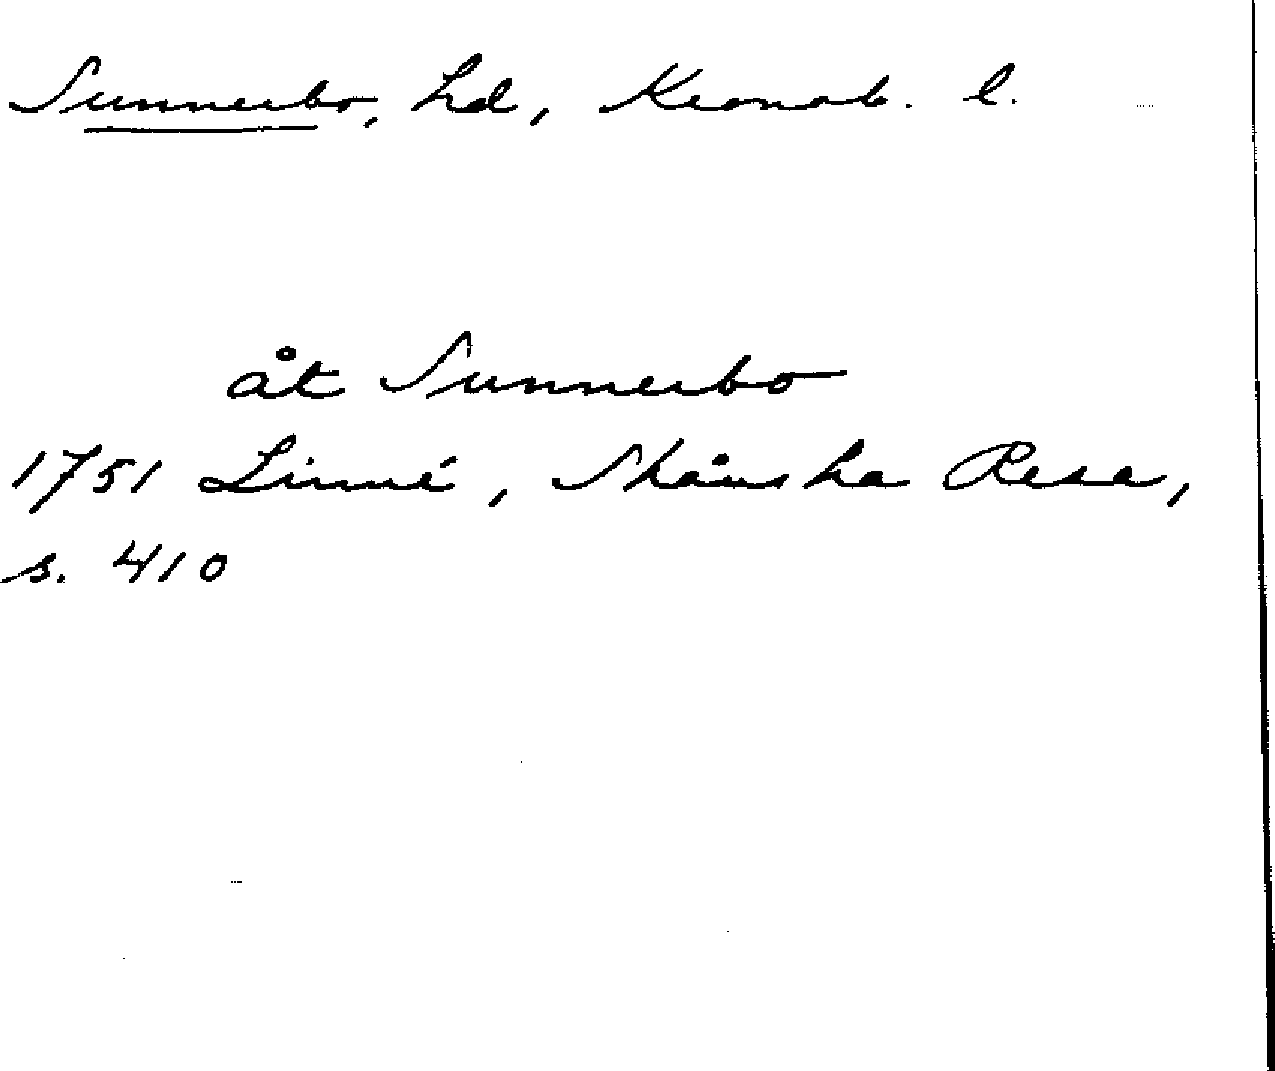 Sunnerbo, hd, Kronob. l.
åt Sunnerbo
1751 Linné, Skånska Resa,
s. 410